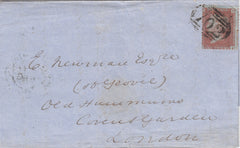 E. Newman Esqre
(of Yeovil)
Old Hummums
Covent Garden
London